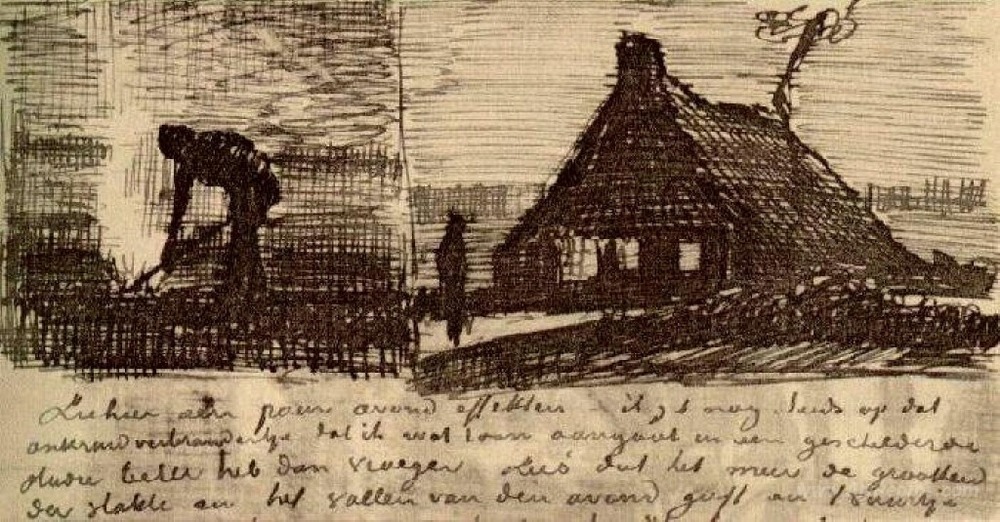 Ziehier een paar avond effekten – ik zit nog steeds op dat
onkruidverbrandertje dat ik wat toon aangaat in een geschilderde
studie beter heb dan vroeger zóó dat het meer de grootheid
der vlakte en het vallen van den avond geeft en 't vuurtje